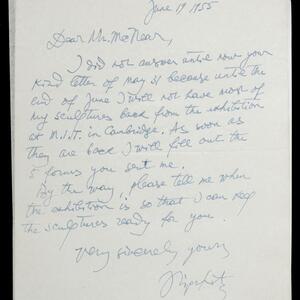 June 19 1955
Dear Mr. McNear,
I did not answer until now your
kind letter of May 31 because until the
end of June I will not have most of
my sculptures back from the exhibition
at M.I.T. in Cambridge. As soon as
they are back I will fill out the
5 forms you sent me.
By the way, please tell me when
the exhibition is so that I can keep
the sculptures ready for you.
Very sincerely yours
J Lipchitz